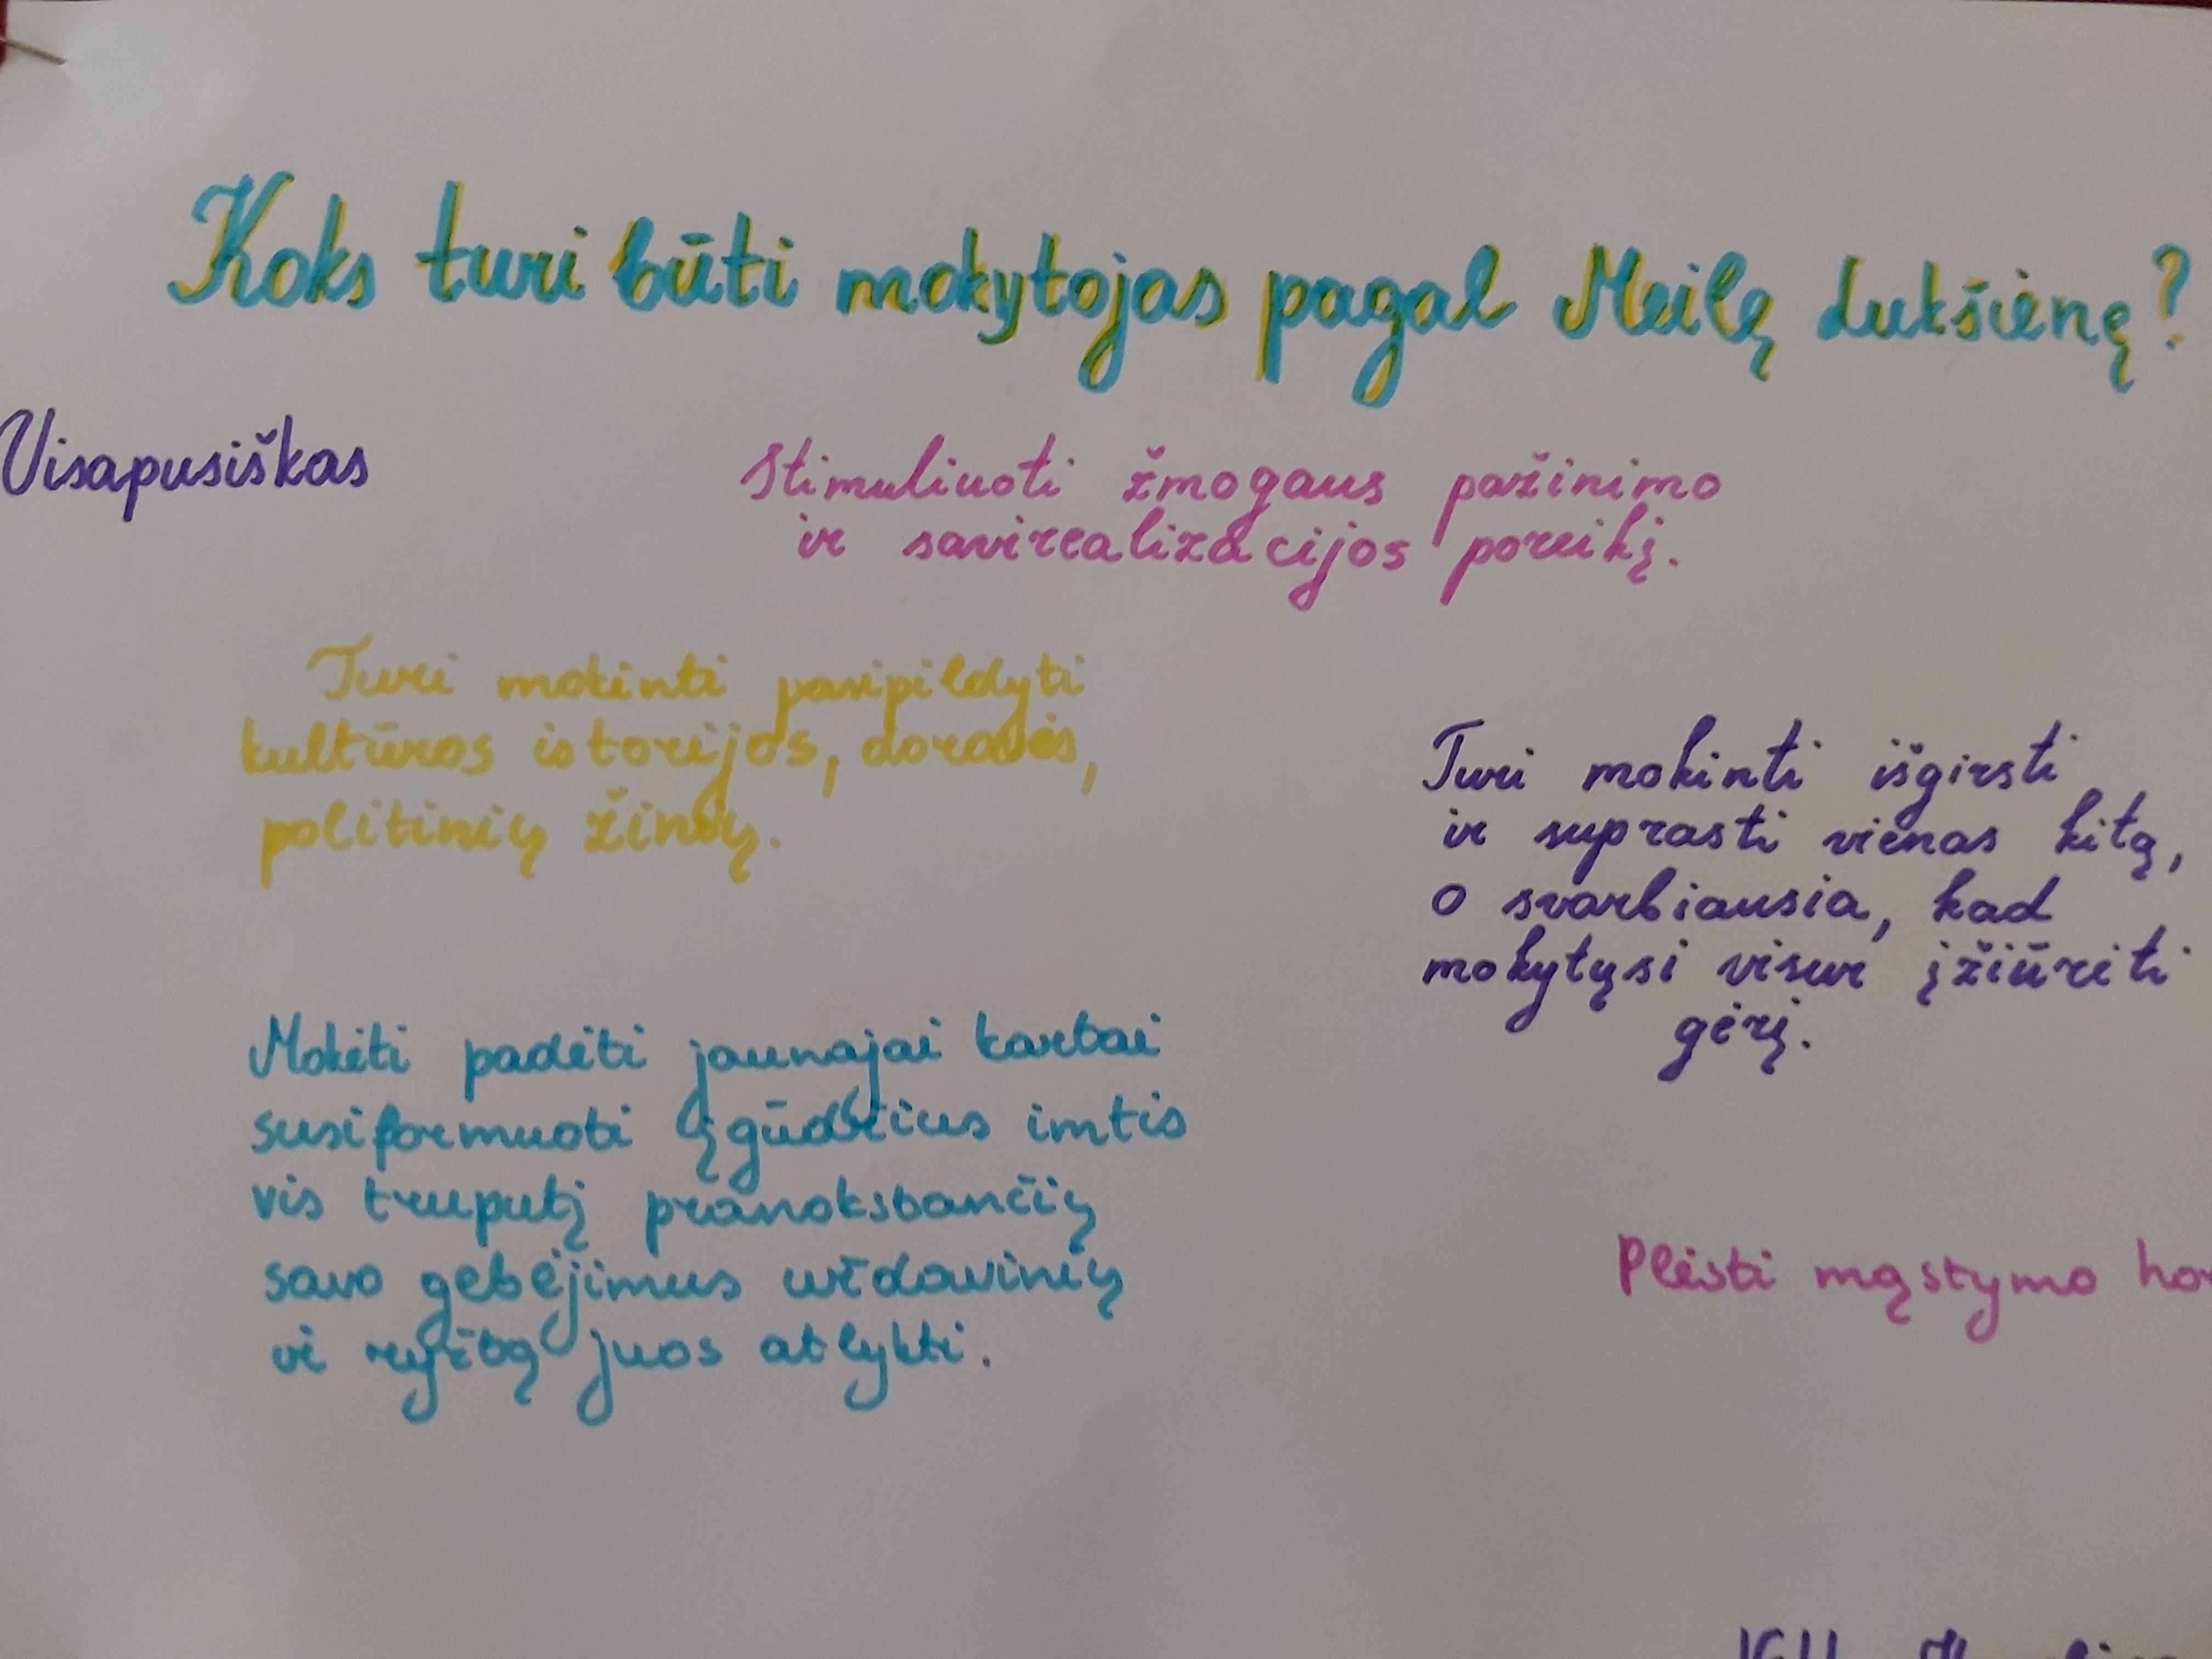 Koks turi būti mokytojas pagal Meilę Lukšienę?
Visapusiškas
Stimuliuoti žmogaus pažinimo
ir savirealizacijos poreikį.
Turi mokinti pasipildyti
kultūros istorijos, dorovės,
politinių žinių.
Turi mokinti išgirsti
ir suprasti vienas kitą,
o svarbiausia, kad
mokytųsi visur įžiūrėti
gėrį.
Mokėti padėti jaunajai kartai
susiformuoti įgūdžius imtis
vis truputį pranokstančių
savo gebėjimus uždavinių
ir ryžtą juos atlykti.
Plėsti mąstymo